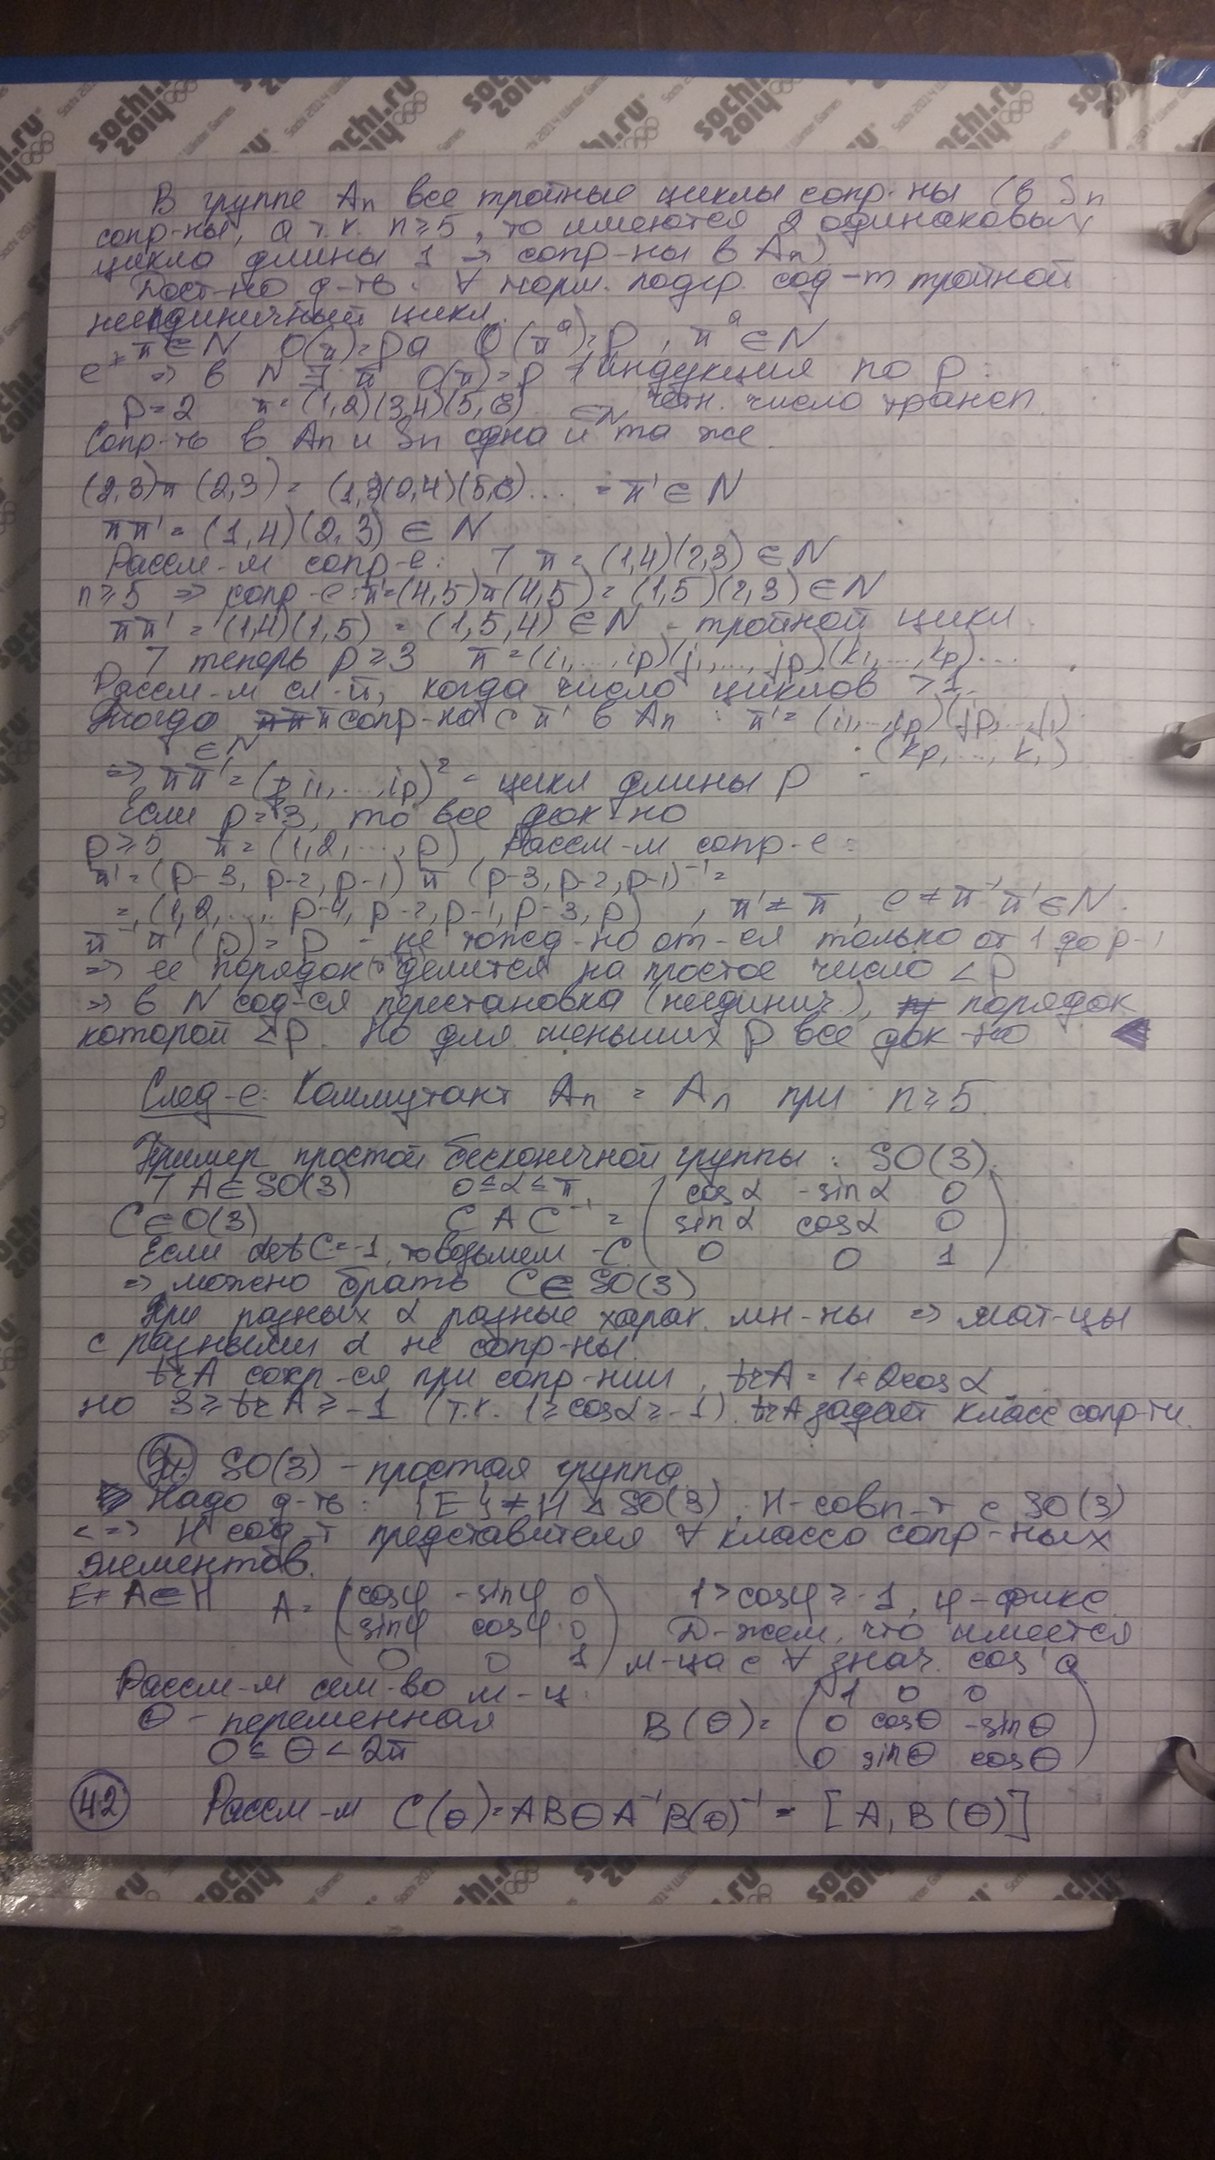 В группе Aₙ все тройные циклы сопр-ны (в Sₙ
сопр-ны, а т.к. n≥5, то имеются 2 одинаковых
цикла длины 1 → сопр-ны в Aₙ)
Дост-но д-ть: ∀ норм. подгр. сод-т тройной
неединичный цикл.
e ≠ π ∈ N O(π)=pa O(πᵃ)=p, πᵃ ∈ N
⇒ в N ∃ π O(π)=p индукция по p:
p=2 π=(1,2)(3,4)(5,6) ∈N четн. число трансп
Сопр-ть в Aₙ и Sₙ одна и та же.
(2,3)π(2,3) = (1,3)(2,4)(5,6)... = π' ∈ N
ππ' = (1,4)(2,3) ∈ N
Рассм-м сопр-е: 7 π = (1,4)(2,3) ∈ N
n≥5 ⇒ сопр-е: π'=(4,5)π(4,5) = (1,5)(2,3) ∈ N
ππ' = (1,4)(1,5) = (1,5,4) ∈ N - тройной цикл.
7 теперь p≥3 π=(i₁,...,iₚ)(j₁,...,jₚ)(k₁,...,kₚ)...
Рассм-м сл-й, когда число циклов >1.
Тогда π сопр-на с π' в Aₙ : π'= (i₁,...,iₚ)(jₚ,...,j₁)
∈N (kₚ,...,k₁)
⇒ ππ' = (i₁,...,iₚ)² - цикл длины p
Если p=3, то все док-но
p≥5 π=(1,2,...,p) Рассм-м сопр-е:
π'=(p-3, p-2, p-1) π (p-3, p-2, p-1)⁻¹=
= (1,2,..., p-4, p-2, p-1, p-3, p) , π'≠π , e≠π⁻¹π'∈N.
π⁻¹π'(p)=p - не тожд-но от-ся только от 1 до p-1
⇒ ее порядок делится на простое число <p
⇒ в N сод-ся перестановка (неединич), порядок
которой <p. Но для меньших p все док-но ◀
След-е: Коммутант Aₙ = Aₙ при n≥5
Пример простой бесконечной группы : SO(3).
7 A∈SO(3) 0≤α≤π
C∈O(3) CAC⁻¹ = ( cosα -sinα 0
sinα cosα 0
0 0 1 )
Если detC=-1, то возьмем -C
⇒ можно брать C∈SO(3)
При разных α разные харак. мн-ны ⇒ мат-цы
с разными α не сопр-ны.
trA сохр-ся при сопр-нии, trA = 1+2cosα
но 3≥trA≥-1 (т.к. 1≥cosα≥-1). trA задает класс сопр-ти.
SO(3) - простая группа
Надо д-ть: {E}≠H ⊲ SO(3) , H- совп-т с SO(3)
<=> H сод-т представителя ∀ класса сопр-ных
элементов.
E≠A∈H A= ( cosφ -sinφ 0
sinφ cosφ 0
0 0 1 )
1>cosφ≥-1, φ-фикс
Д-жем, что имеется
м-ца с ∀ знач. cos α
Рассм-м сем-во м-ц
θ - переменная
0≤θ<2π
B(θ)= ( 1 0 0
0 cosθ -sinθ
0 sinθ cosθ )
42 Рассм-м C(θ)=ABθA⁻¹B(θ)⁻¹ = [A, B(θ)]
sochi.ru
2014